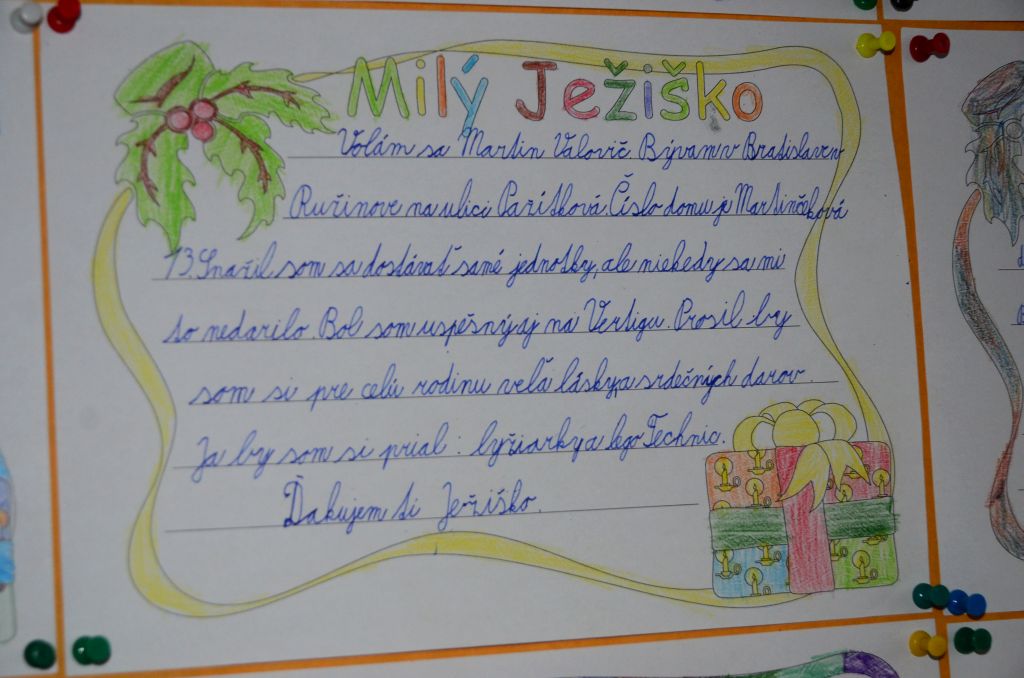 Milý Ježiško
Volám sa Martin Valovič. Bývam v Bratislave v
Ružinove na ulici Pažítková. Číslo domu je Martinčeková
13. Snažil som sa dostávať samé jednotky, ale niekedy sa mi
to nedarilo. Bol som uspěšný aj na Vertigu. Prosil by
som si pre celú rodinu velá lásky a srdečných darov.
Ja by som si prial: lyžiarky a lego Technic.
Ďakujem ti Ježiško.